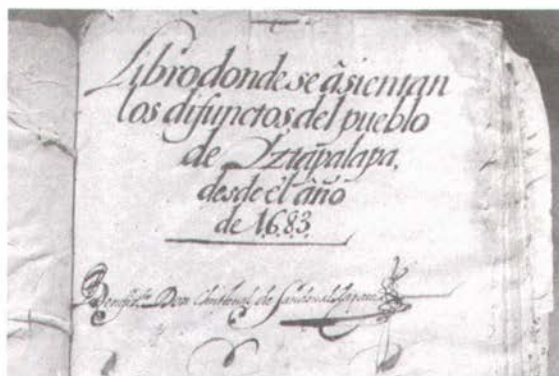 Libro donde se asientan
los difunctos del pueblo
de Iztapalapa,
desde el año
de 1683.
Don Christoual de Sandoual